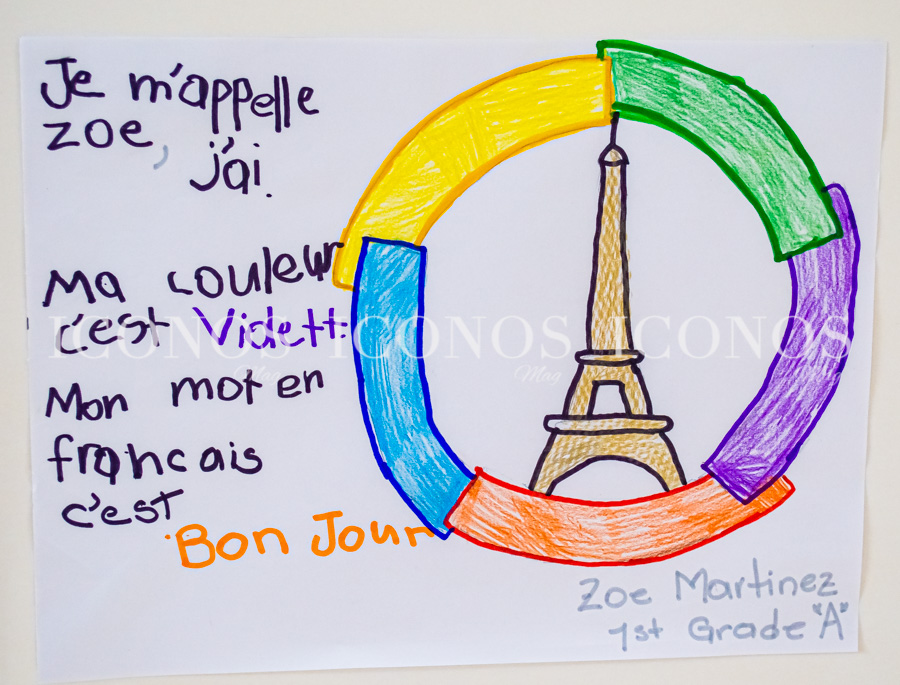 Je m'appelle
zoe, j'ai.
Ma couleur
c'est Vidett
Mon mot en
francais
c'est
Bon Jour
Zoe Martinez
1st Grade "A"
ICONOS ICONOS ICONOS
Mag Mag